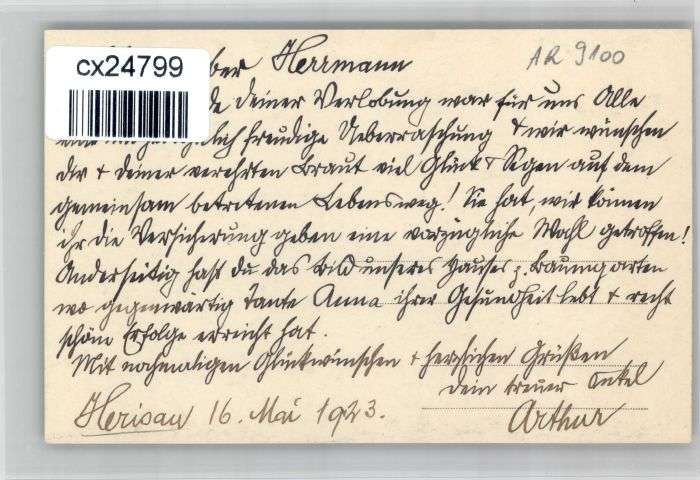 cx24799
AR 9100
ber Herrmann
de deiner Verlobung war für uns Alle
eine freudige Ueberraschung & wir wünschen
dir & deiner verehrten Braut viel Glück & Segen auf dem
gemeinsam betretenen Lebensweg! Sie hat, wir können
ihr die Versicherung geben eine vorzügliche Wahl getroffen!
Anderseitig hast du das Bild unseres Hauses z. Baumgarten
wo gegenwärtig Tante Anna ihrer Gesundheit lebt & recht
schöne Erfolge erreicht hat.
Mit nochmaligen Glückwünschen & herzlichen Grüßen
dein treuer Onkel
Arthur
Herisau 16. Mai 1923.